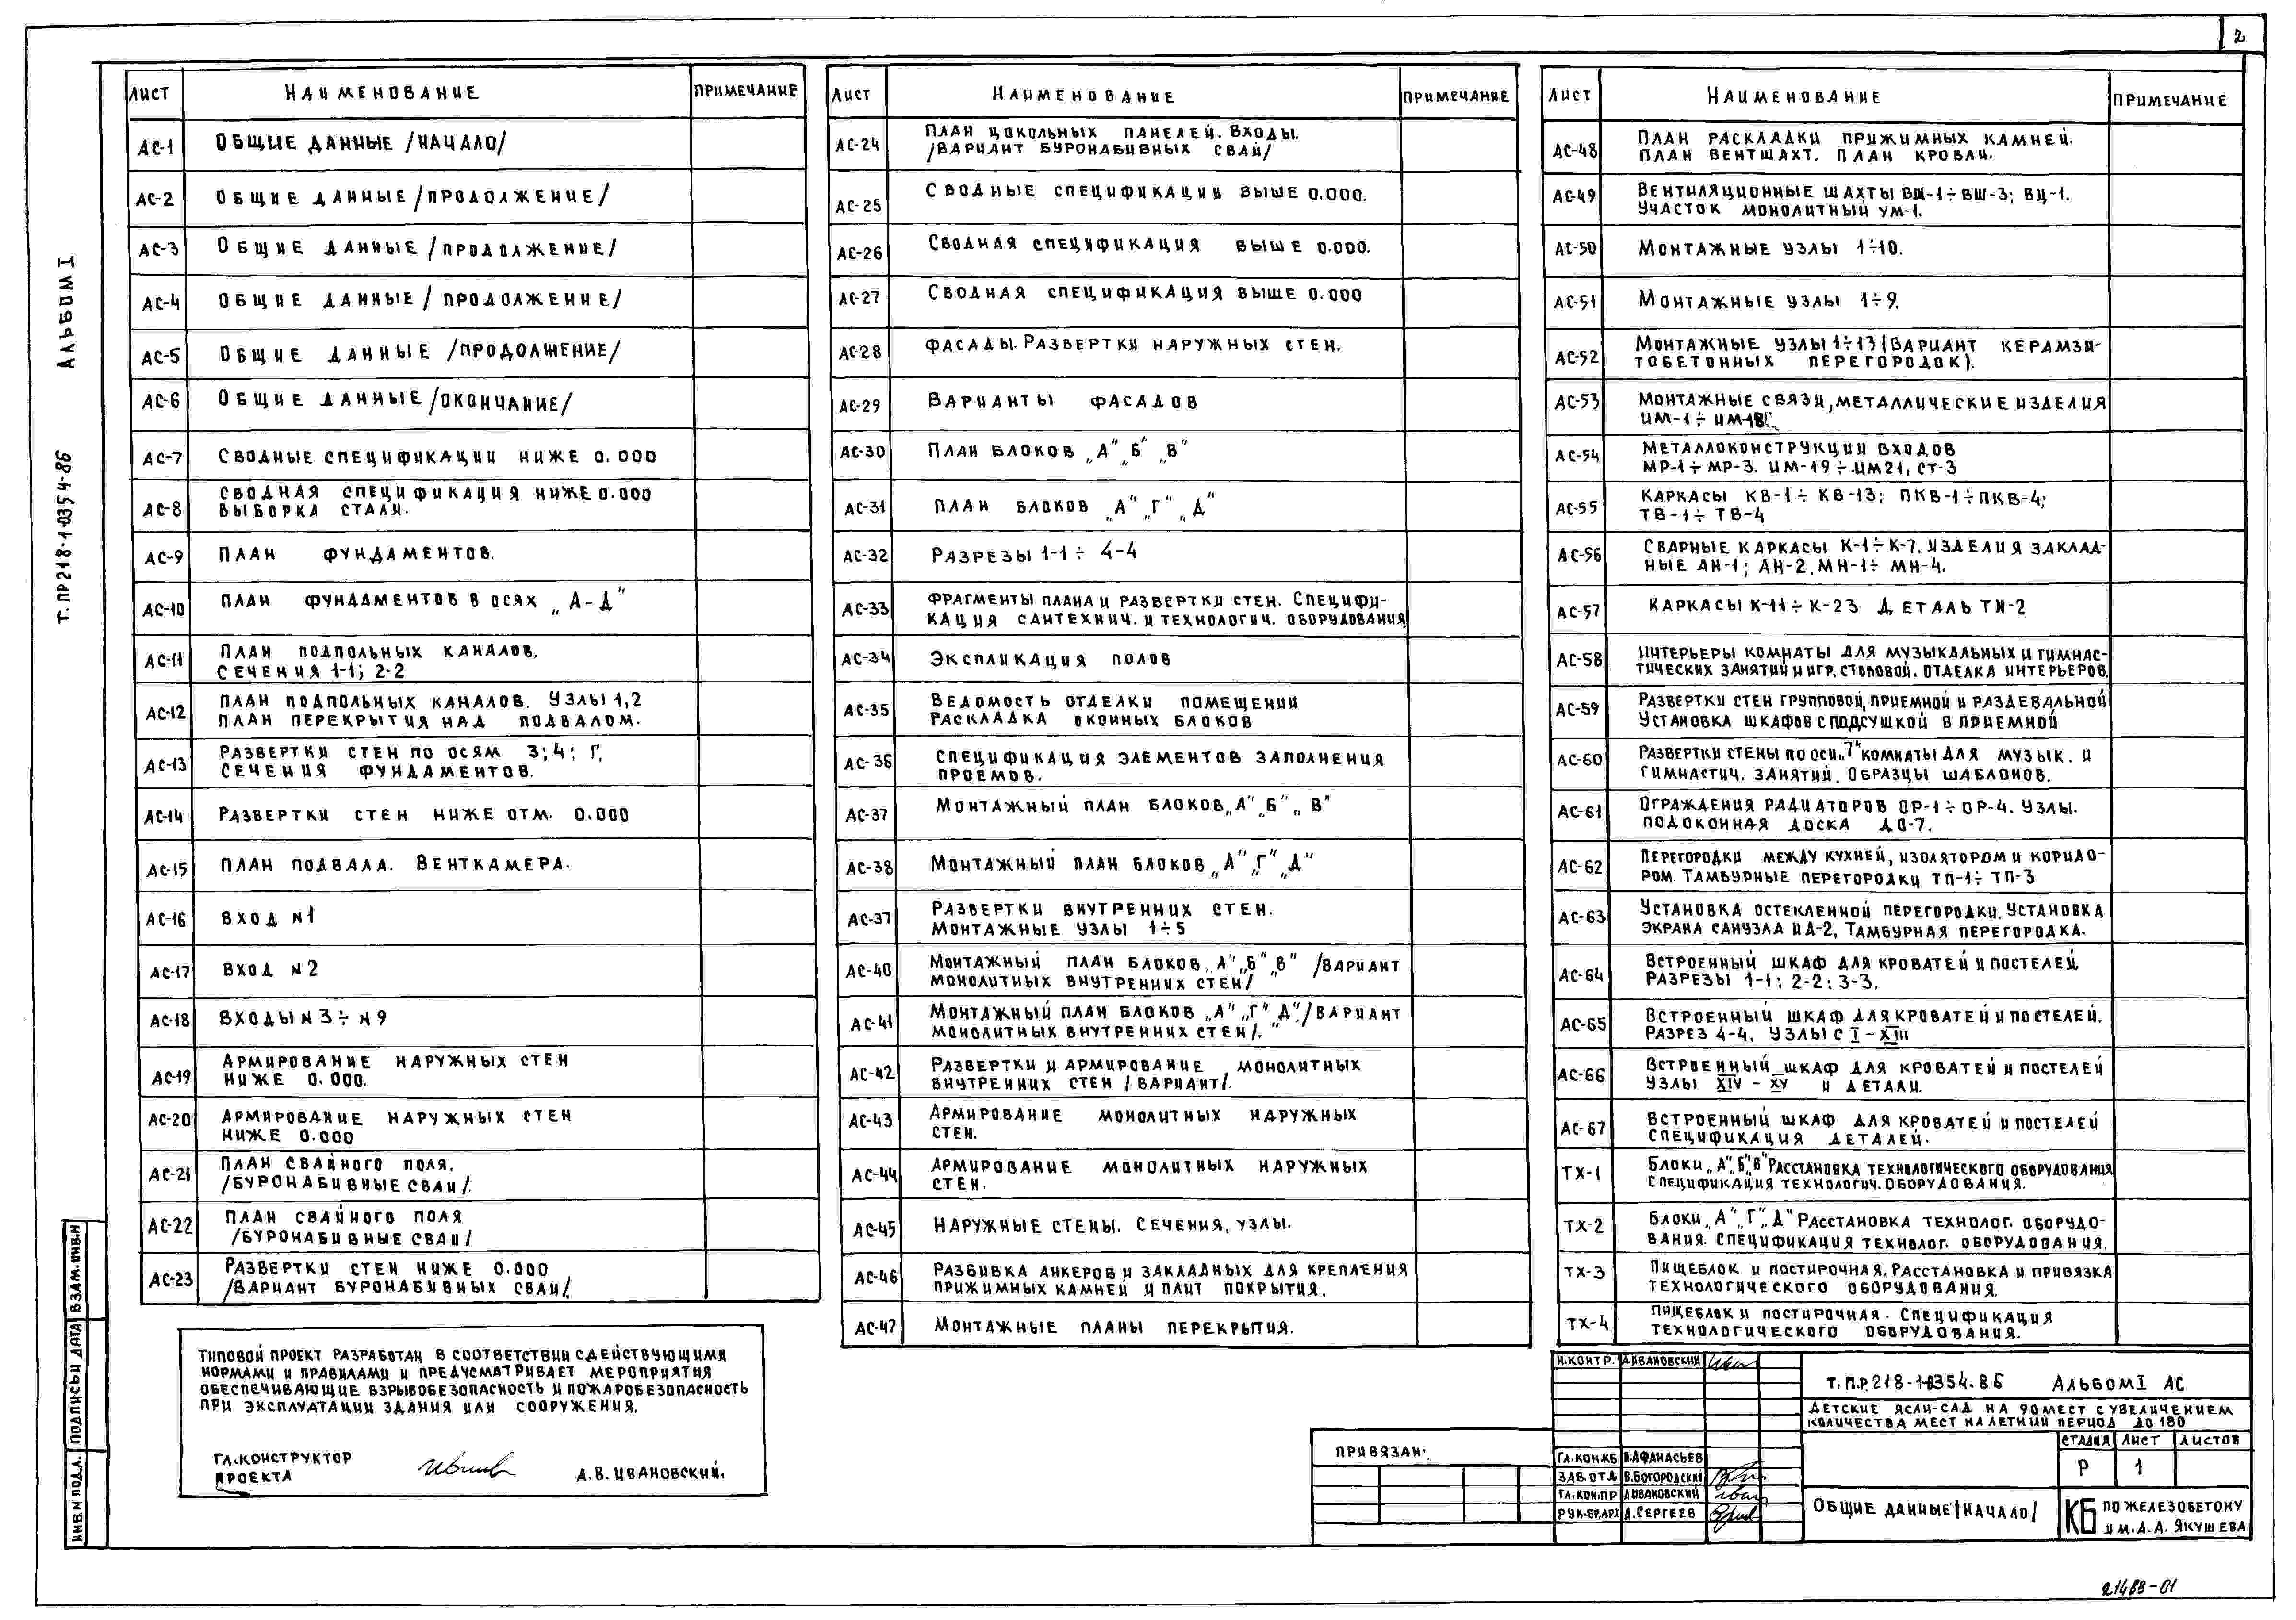 2
АЛЬБОМ I
Т. ПР 218-1-0354-86
ЛИСТ НАИМЕНОВАНИЕ ПРИМЕЧАНИЕ
АС-1 ОБЩИЕ ДАННЫЕ /НАЧАЛО/
АС-2 ОБЩИЕ ДАННЫЕ /ПРОДОЛЖЕНИЕ/
АС-3 ОБЩИЕ ДАННЫЕ /ПРОДОЛЖЕНИЕ/
АС-4 ОБЩИЕ ДАННЫЕ /ПРОДОЛЖЕНИЕ/
АС-5 ОБЩИЕ ДАННЫЕ /ПРОДОЛЖЕНИЕ/
АС-6 ОБЩИЕ ДАННЫЕ /ОКОНЧАНИЕ/
АС-7 СВОДНЫЕ СПЕЦИФИКАЦИИ НИЖЕ 0.000
АС-8 СВОДНАЯ СПЕЦИФИКАЦИЯ НИЖЕ 0.000
ВЫБОРКА СТАЛИ.
АС-9 ПЛАН ФУНДАМЕНТОВ.
АС-10 ПЛАН ФУНДАМЕНТОВ В ОСЯХ „А-Д"
АС-11 ПЛАН ПОДПОЛЬНЫХ КАНАЛОВ,
СЕЧЕНИЯ 1-1; 2-2
АС-12 ПЛАН ПОДПОЛЬНЫХ КАНАЛОВ. УЗЛЫ 1,2
ПЛАН ПЕРЕКРЫТИЯ НАД ПОДВАЛОМ.
АС-13 РАЗВЕРТКИ СТЕН ПО ОСЯМ 3; 4; Г,
СЕЧЕНИЯ ФУНДАМЕНТОВ.
АС-14 РАЗВЕРТКИ СТЕН НИЖЕ ОТМ. 0.000
АС-15 ПЛАН ПОДВАЛА. ВЕНТКАМЕРА.
АС-16 ВХОД N1
АС-17 ВХОД N2
АС-18 ВХОДЫ N3÷N9
АС-19 АРМИРОВАНИЕ НАРУЖНЫХ СТЕН
НИЖЕ 0.000.
АС-20 АРМИРОВАНИЕ НАРУЖНЫХ СТЕН
НИЖЕ 0.000
АС-21 ПЛАН СВАЙНОГО ПОЛЯ.
/БУРОНАБИВНЫЕ СВАИ/.
АС-22 ПЛАН СВАЙНОГО ПОЛЯ
/БУРОНАБИВНЫЕ СВАИ/
АС-23 РАЗВЕРТКИ СТЕН НИЖЕ 0.000
/ВАРИАНТ БУРОНАБИВНЫХ СВАИ/.
ЛИСТ НАИМЕНОВАНИЕ ПРИМЕЧАНИЕ
АС-24 ПЛАН ЦОКОЛЬНЫХ ПАНЕЛЕЙ. ВХОДЫ.
/ВАРИАНТ БУРОНАБИВНЫХ СВАЙ/
АС-25 СВОДНЫЕ СПЕЦИФИКАЦИИ ВЫШЕ 0.000.
АС-26 СВОДНАЯ СПЕЦИФИКАЦИЯ ВЫШЕ 0.000.
АС-27 СВОДНАЯ СПЕЦИФИКАЦИЯ ВЫШЕ 0.000
АС-28 ФАСАДЫ. РАЗВЕРТКИ НАРУЖНЫХ СТЕН.
АС-29 ВАРИАНТЫ ФАСАДОВ
АС-30 ПЛАН БЛОКОВ „А" „Б" „В"
АС-31 ПЛАН БЛОКОВ „А" „Г" „Д"
АС-32 РАЗРЕЗЫ 1-1÷4-4
АС-33 ФРАГМЕНТЫ ПЛАНА И РАЗВЕРТКИ СТЕН. СПЕЦИФИ-
КАЦИЯ САНТЕХНИЧ. И ТЕХНОЛОГИЧ. ОБОРУДОВАНИЯ
АС-34 ЭКСПЛИКАЦИЯ ПОЛОВ
АС-35 ВЕДОМОСТЬ ОТДЕЛКИ ПОМЕЩЕНИИ
РАСКЛАДКА ОКОННЫХ БЛОКОВ
АС-36 СПЕЦИФИКАЦИЯ ЭЛЕМЕНТОВ ЗАПОЛНЕНИЯ
ПРОЕМОВ.
АС-37 МОНТАЖНЫЙ ПЛАН БЛОКОВ „А" „Б" „В"
АС-38 МОНТАЖНЫЙ ПЛАН БЛОКОВ „А" „Г" „Д"
АС-37 РАЗВЕРТКИ ВНУТРЕННИХ СТЕН.
МОНТАЖНЫЕ УЗЛЫ 1÷5
АС-40 МОНТАЖНЫЙ ПЛАН БЛОКОВ „А" „Б" „В" /ВАРИАНТ
МОНОЛИТНЫХ ВНУТРЕННИХ СТЕН/
АС-41 МОНТАЖНЫЙ ПЛАН БЛОКОВ „А" „Г" „Д" /ВАРИАНТ
МОНОЛИТНЫХ ВНУТРЕННИХ СТЕН/.
АС-42 РАЗВЕРТКИ И АРМИРОВАНИЕ МОНОЛИТНЫХ
ВНУТРЕННИХ СТЕН /ВАРИАНТ/.
АС-43 АРМИРОВАНИЕ МОНОЛИТНЫХ НАРУЖНЫХ
СТЕН.
АС-44 АРМИРОВАНИЕ МОНОЛИТНЫХ НАРУЖНЫХ
СТЕН.
АС-45 НАРУЖНЫЕ СТЕНЫ. СЕЧЕНИЯ, УЗЛЫ.
АС-46 РАЗБИВКА АНКЕРОВ И ЗАКЛАДНЫХ ДЛЯ КРЕПЛЕНИЯ
ПРИЖИМНЫХ КАМНЕЙ И ПЛИТ ПОКРЫТИЯ.
АС-47 МОНТАЖНЫЕ ПЛАНЫ ПЕРЕКРЫТИЯ.
ЛИСТ НАИМЕНОВАНИЕ ПРИМЕЧАНИЕ
АС-48 ПЛАН РАСКЛАДКИ ПРИЖИМНЫХ КАМНЕЙ.
ПЛАН ВЕНТШАХТ. ПЛАН КРОВЛИ.
АС-49 ВЕНТИЛЯЦИОННЫЕ ШАХТЫ ВШ-1÷ВШ-3; ВЦ-1.
УЧАСТОК МОНОЛИТНЫЙ УМ-1.
АС-50 МОНТАЖНЫЕ УЗЛЫ 1÷10.
АС-51 МОНТАЖНЫЕ УЗЛЫ 1÷9.
АС-52 МОНТАЖНЫЕ УЗЛЫ 1÷13 (ВАРИАНТ КЕРАМЗИ-
ТОБЕТОННЫХ ПЕРЕГОРОДОК).
АС-53 МОНТАЖНЫЕ СВЯЗИ, МЕТАЛЛИЧЕСКИЕ ИЗДЕЛИЯ
ИМ-1÷ИМ-18
АС-54 МЕТАЛЛОКОНСТРУКЦИИ ВХОДОВ
МР-1÷МР-3. ИМ-19÷ИМ21, СТ-3
АС-55 КАРКАСЫ КВ-1÷КВ-13; ПКВ-1÷ПКВ-4;
ТВ-1÷ТВ-4
АС-56 СВАРНЫЕ КАРКАСЫ К-1÷К-7. ИЗДЕЛИЯ ЗАКЛАД-
НЫЕ АН-1; АН-2, МН-1÷МН-4.
АС-57 КАРКАСЫ К-11÷К-23 ДЕТАЛЬ ТИ-2
АС-58 ИНТЕРЬЕРЫ КОМНАТЫ ДЛЯ МУЗЫКАЛЬНЫХ И ГИМНАС-
ТИЧЕСКИХ ЗАНЯТИЙ И ИГР. СТОЛОВОЙ. ОТДЕЛКА ИНТЕРЬЕРОВ.
АС-59 РАЗВЕРТКИ СТЕН ГРУППОВОЙ, ПРИЕМНОЙ И РАЗДЕВАЛЬНОЙ
УСТАНОВКА ШКАФОВ С ПОДСУШКОЙ В ПРИЕМНОЙ
АС-60 РАЗВЕРТКИ СТЕНЫ ПО ОСИ „7" КОМНАТЫ ДЛЯ МУЗЫК. И
ГИМНАСТИЧ. ЗАНЯТИЙ. ОБРАЗЦЫ ШАБЛОНОВ.
АС-61 ОГРАЖДЕНИЯ РАДИАТОРОВ ОР-1÷ОР-4. УЗЛЫ.
ПОДОКОННАЯ ДОСКА ДО-7.
АС-62 ПЕРЕГОРОДКИ МЕЖДУ КУХНЕЙ, ИЗОЛЯТОРОМ И КОРИДО-
РОМ. ТАМБУРНЫЕ ПЕРЕГОРОДКИ ТП-1÷ТП-3
АС-63 УСТАНОВКА ОСТЕКЛЕННОЙ ПЕРЕГОРОДКИ. УСТАНОВКА
ЭКРАНА САНУЗЛА ИД-2, ТАМБУРНАЯ ПЕРЕГОРОДКА.
АС-64 ВСТРОЕННЫЙ ШКАФ ДЛЯ КРОВАТЕЙ И ПОСТЕЛЕЙ
РАЗРЕЗЫ 1-1; 2-2; 3-3.
АС-65 ВСТРОЕННЫЙ ШКАФ ДЛЯ КРОВАТЕЙ И ПОСТЕЛЕЙ.
РАЗРЕЗ 4-4. УЗЛЫ С I-XIII
АС-66 ВСТРОЕННЫЙ ШКАФ ДЛЯ КРОВАТЕЙ И ПОСТЕЛЕЙ
УЗЛЫ XIV-XV И ДЕТАЛИ.
АС-67 ВСТРОЕННЫЙ ШКАФ ДЛЯ КРОВАТЕЙ И ПОСТЕЛЕЙ
СПЕЦИФИКАЦИЯ ДЕТАЛЕЙ.
ТХ-1 БЛОКИ „А" „Б" „В" РАССТАНОВКА ТЕХНОЛОГИЧЕСКОГО ОБОРУДОВАНИЯ
СПЕЦИФИКАЦИЯ ТЕХНОЛОГИЧ. ОБОРУДОВАНИЯ.
ТХ-2 БЛОКИ „А" „Г" „Д" РАССТАНОВКА ТЕХНОЛОГ. ОБОРУДО-
ВАНИЯ. СПЕЦИФИКАЦИЯ ТЕХНОЛОГ. ОБОРУДОВАНИЯ.
ТХ-3 ПИЩЕБЛОК И ПОСТИРОЧНАЯ. РАССТАНОВКА И ПРИВЯЗКА
ТЕХНОЛОГИЧЕСКОГО ОБОРУДОВАНИЯ.
ТХ-4 ПИЩЕБЛОК И ПОСТИРОЧНАЯ. СПЕЦИФИКАЦИЯ
ТЕХНОЛОГИЧЕСКОГО ОБОРУДОВАНИЯ.
ТИПОВОЙ ПРОЕКТ РАЗРАБОТАН В СООТВЕТСТВИИ С ДЕЙСТВУЮЩИМИ
НОРМАМИ И ПРАВИЛАМИ И ПРЕДУСМАТРИВАЕТ МЕРОПРИЯТИЯ
ОБЕСПЕЧИВАЮЩИЕ ВЗРЫВОБЕЗОПАСНОСТЬ И ПОЖАРОБЕЗОПАСНОСТЬ
ПРИ ЭКСПЛУАТАЦИИ ЗДАНИЯ ИЛИ СООРУЖЕНИЯ.
ГЛ. КОНСТРУКТОР
ПРОЕКТА А.В. ИВАНОВСКИЙ.
ИНВ. N ПОДЛ. ПОДПИСЬ И ДАТА ВЗАМ. ИНВ. N
ПРИВЯЗАН:
Н. КОНТР. А.ИВАНОВСКИЙ
ГЛ. КОН.КБ П.АФАНАСЬЕВ
ЗАВ. ОТД В.БОГОРОДСКИЙ
ГЛ. КОН.ПР А.ИВАНОВСКИЙ
РУК. БР. АРХ Д.СЕРГЕЕВ
Т.П.Р. 218-1-0354.86 АЛЬБОМ I АС
ДЕТСКИЕ ЯСЛИ-САД НА 90 МЕСТ С УВЕЛИЧЕНИЕМ
КОЛИЧЕСТВА МЕСТ НА ЛЕТНИЙ ПЕРИОД ДО 180
СТАДИЯ ЛИСТ ЛИСТОВ
Р 1
ОБЩИЕ ДАННЫЕ /НАЧАЛО/
КБ ПО ЖЕЛЕЗОБЕТОНУ
ИМ. А.А. ЯКУШЕВА
21483-01